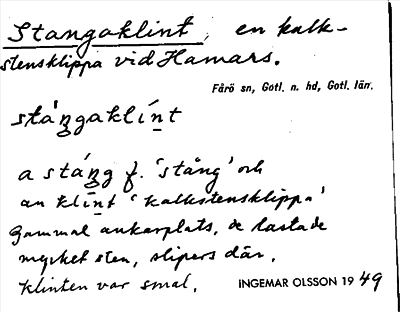 Stangaklint, en kalk-
stensklippa vid Hamars.
Fårö sn, Gotl. n. hd, Gotl. län.
stángaklínt
a stáng f. 'stång' och
an klínt 'kalkstensklippa'
Gammal ankarplats, de lastade
mycket sten, slipers där.
Klinten var smal.
INGEMAR OLSSON 1949